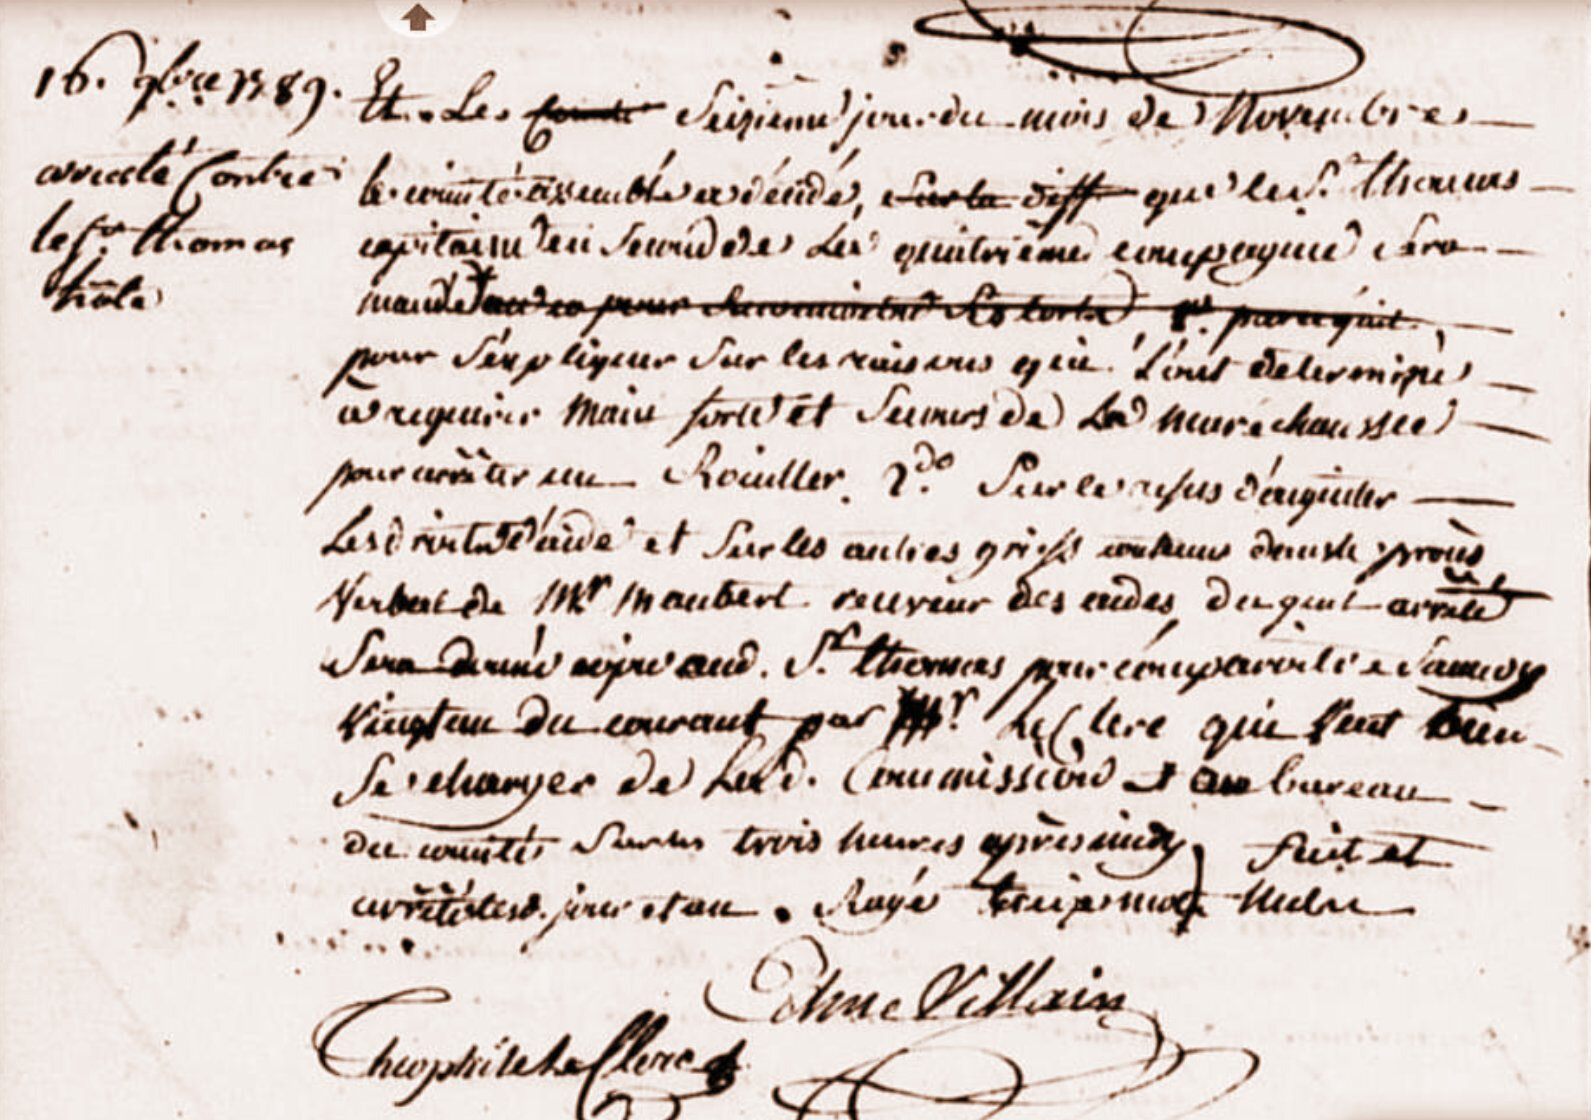 16. 9bre 1789.
arresté Contre
le Sr. thomas
nota
Et Le Comité Seizieme jour du mois de Novembre
le comité assemblé a décidé, sur la diff que le Sr. thomas
capitaine en second de La quatrieme compagnie sera
mandé pour
pour s'expliquer sur les raisons qui l'ont determiné
a requerir main forte et secours de La maréchaussée
pour arrêter un Roullier. 2do. Sur le refus d'acquitter
Les droits d'aide et sur les autres griefs contenus dans le procès
Verbal de Mr Maubert receveur des aides, duquel arrêté
Sera donné copie aud. Sr. thomas pour comparoitre Samedy
Vingt un du courant par Mr. Le Clerc qui Veut bien
Se charger de Lad. Commission au bureau
du comité Sur les trois heures après midy, fait et
arrêté lesd. jour et an. Rayé treize mots nuls
Edme Villain
Theophile Le Clerc